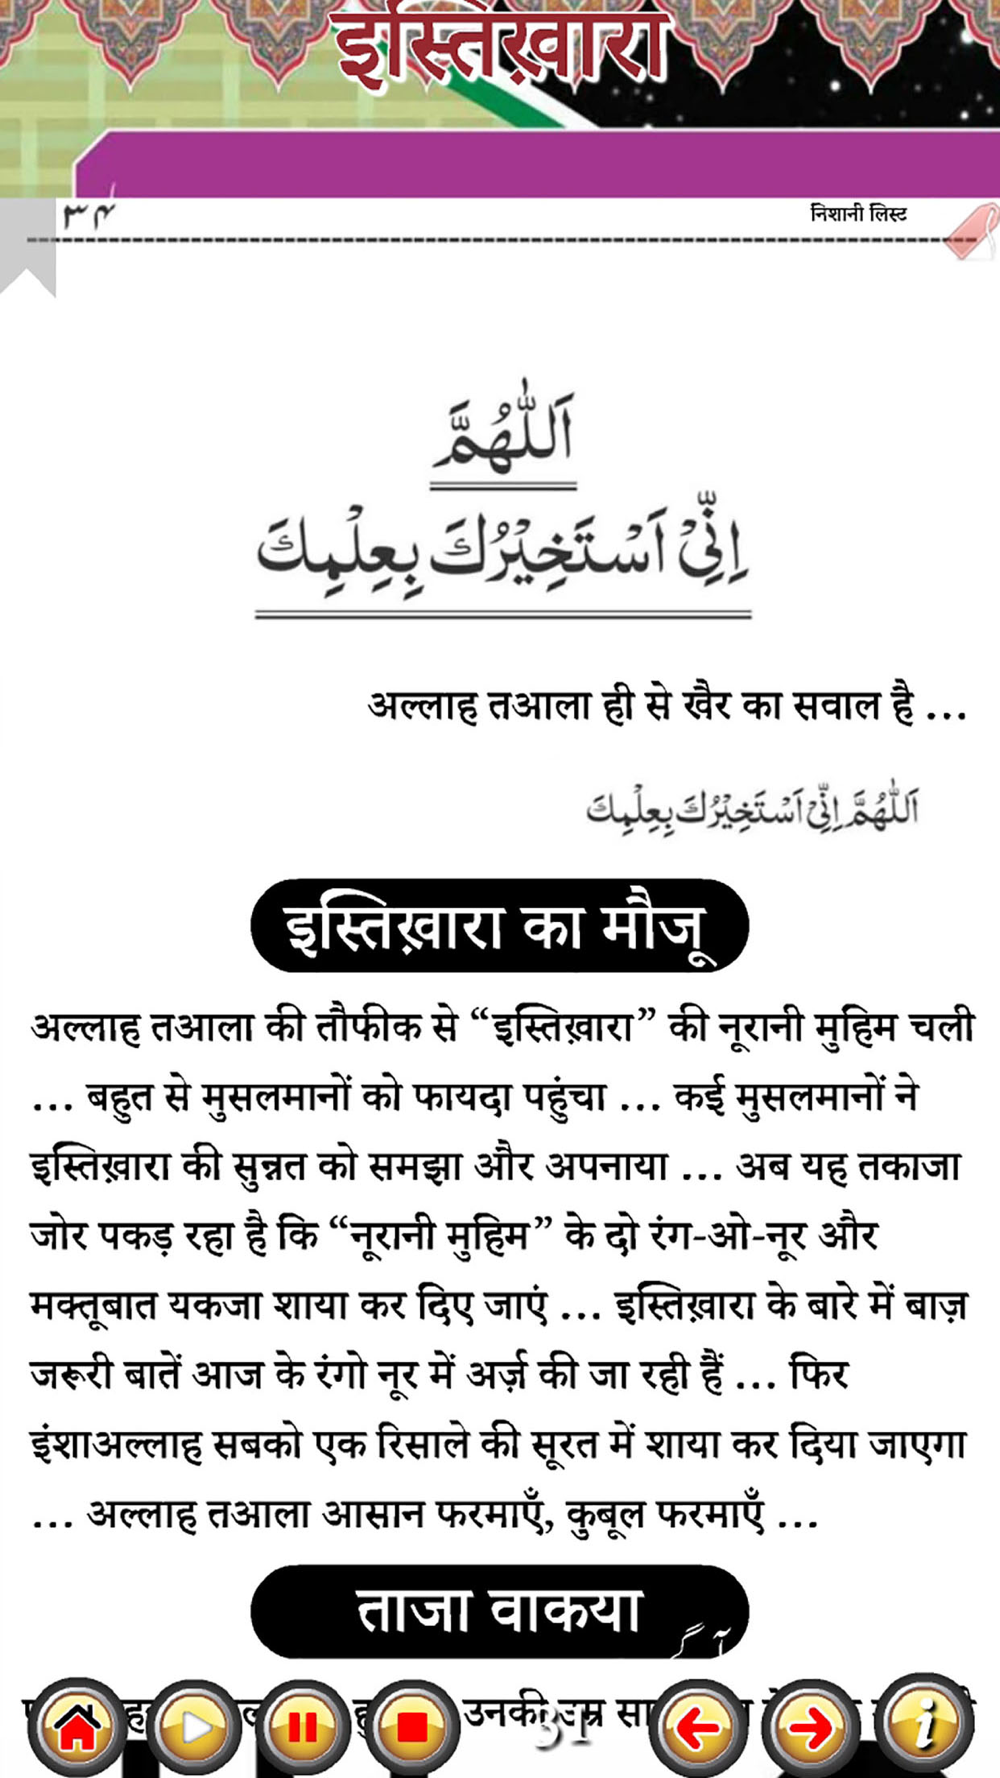 इस्तिख़ारा
निशानी लिस्ट
اَللّٰهُمَّ
اِنِّیْ اَسْتَخِیْرُكَ بِعِلْمِكَ
अल्लाह तआला ही से खैर का सवाल है ...
اَللّٰهُمَّ اِنِّیْ اَسْتَخِیْرُكَ بِعِلْمِكَ
इस्तिख़ारा का मौजू
अल्लाह तआला की तौफीक से “इस्तिख़ारा” की नूरानी मुहिम चली
... बहुत से मुसलमानों को फायदा पहुंचा ... कई मुसलमानों ने
इस्तिख़ारा की सुन्नत को समझा और अपनाया ... अब यह तकाजा
जोर पकड़ रहा है कि “नूरानी मुहिम” के दो रंग-ओ-नूर और
मक्तूबात यकजा शाया कर दिए जाएं ... इस्तिख़ारा के बारे में बाज़
जरूरी बातें आज के रंगो नूर में अर्ज़ की जा रही हैं ... फिर
इंशाअल्लाह सबको एक रिसाले की सूरत में शाया कर दिया जाएगा
... अल्लाह तआला आसान फरमाएँ, कुबूल फरमाएँ ...
ताजा वाकया
उनकी उम्र
31